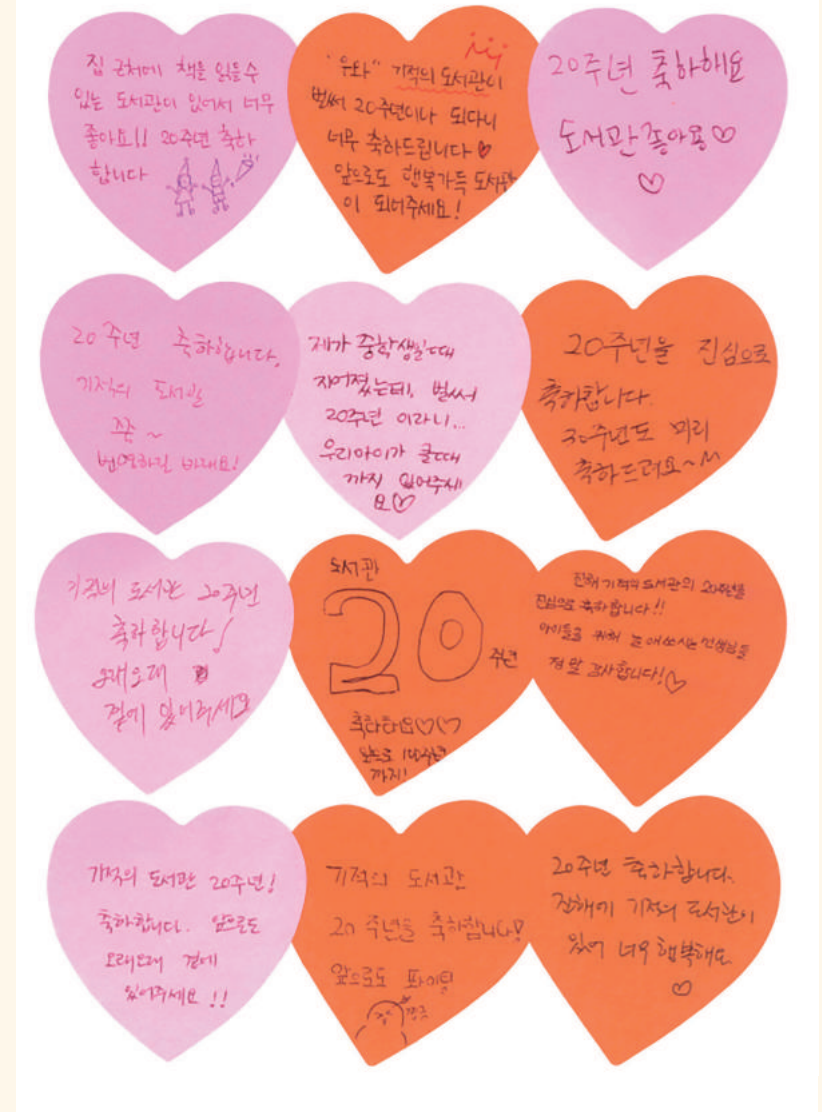 집 근처에 책을 읽을 수
있는 도서관이 있어서 너무
좋아요!! 20주년 축하
합니다
"우와" 기적의 도서관이
벌써 20주년이나 되다니
너무 축하드립니다♥
앞으로도 행복가득 도서관
이 되어주세요!
20주년 축하해요
도서관 좋아용♡
♡
20주년 축하합니다.
기적의 도서관
쭈욱~
번영하길 바래요!
제가 중학생일때
지어졌는데, 벌써
20주년 이라니...
우리아이가 클때
까지 있어주세
요♡
20주년을 진심으로
축하합니다.
30주년도 미리
축하드려요~
기적의 도서관 20주년
축하합니다!
오래오래
곁에 있어주세요
도서관
20
주년
축하해요♡♡
앞으로 100주년
까지!
진해 기적의 도서관의 20주년을
진심으로 축하합니다!!
아이들을 위해 늘 애쓰시는 선생님들
정말 감사합니다!♡
기적의 도서관 20주년!
축하합니다. 앞으로도
오래오래 곁에
있어주세요!!
기적의 도서관
20주년을 축하합니다!
앞으로도 파이팅
20주년 축하합니다.
진해에 기적의 도서관이
있어 너무 행복해요
♡